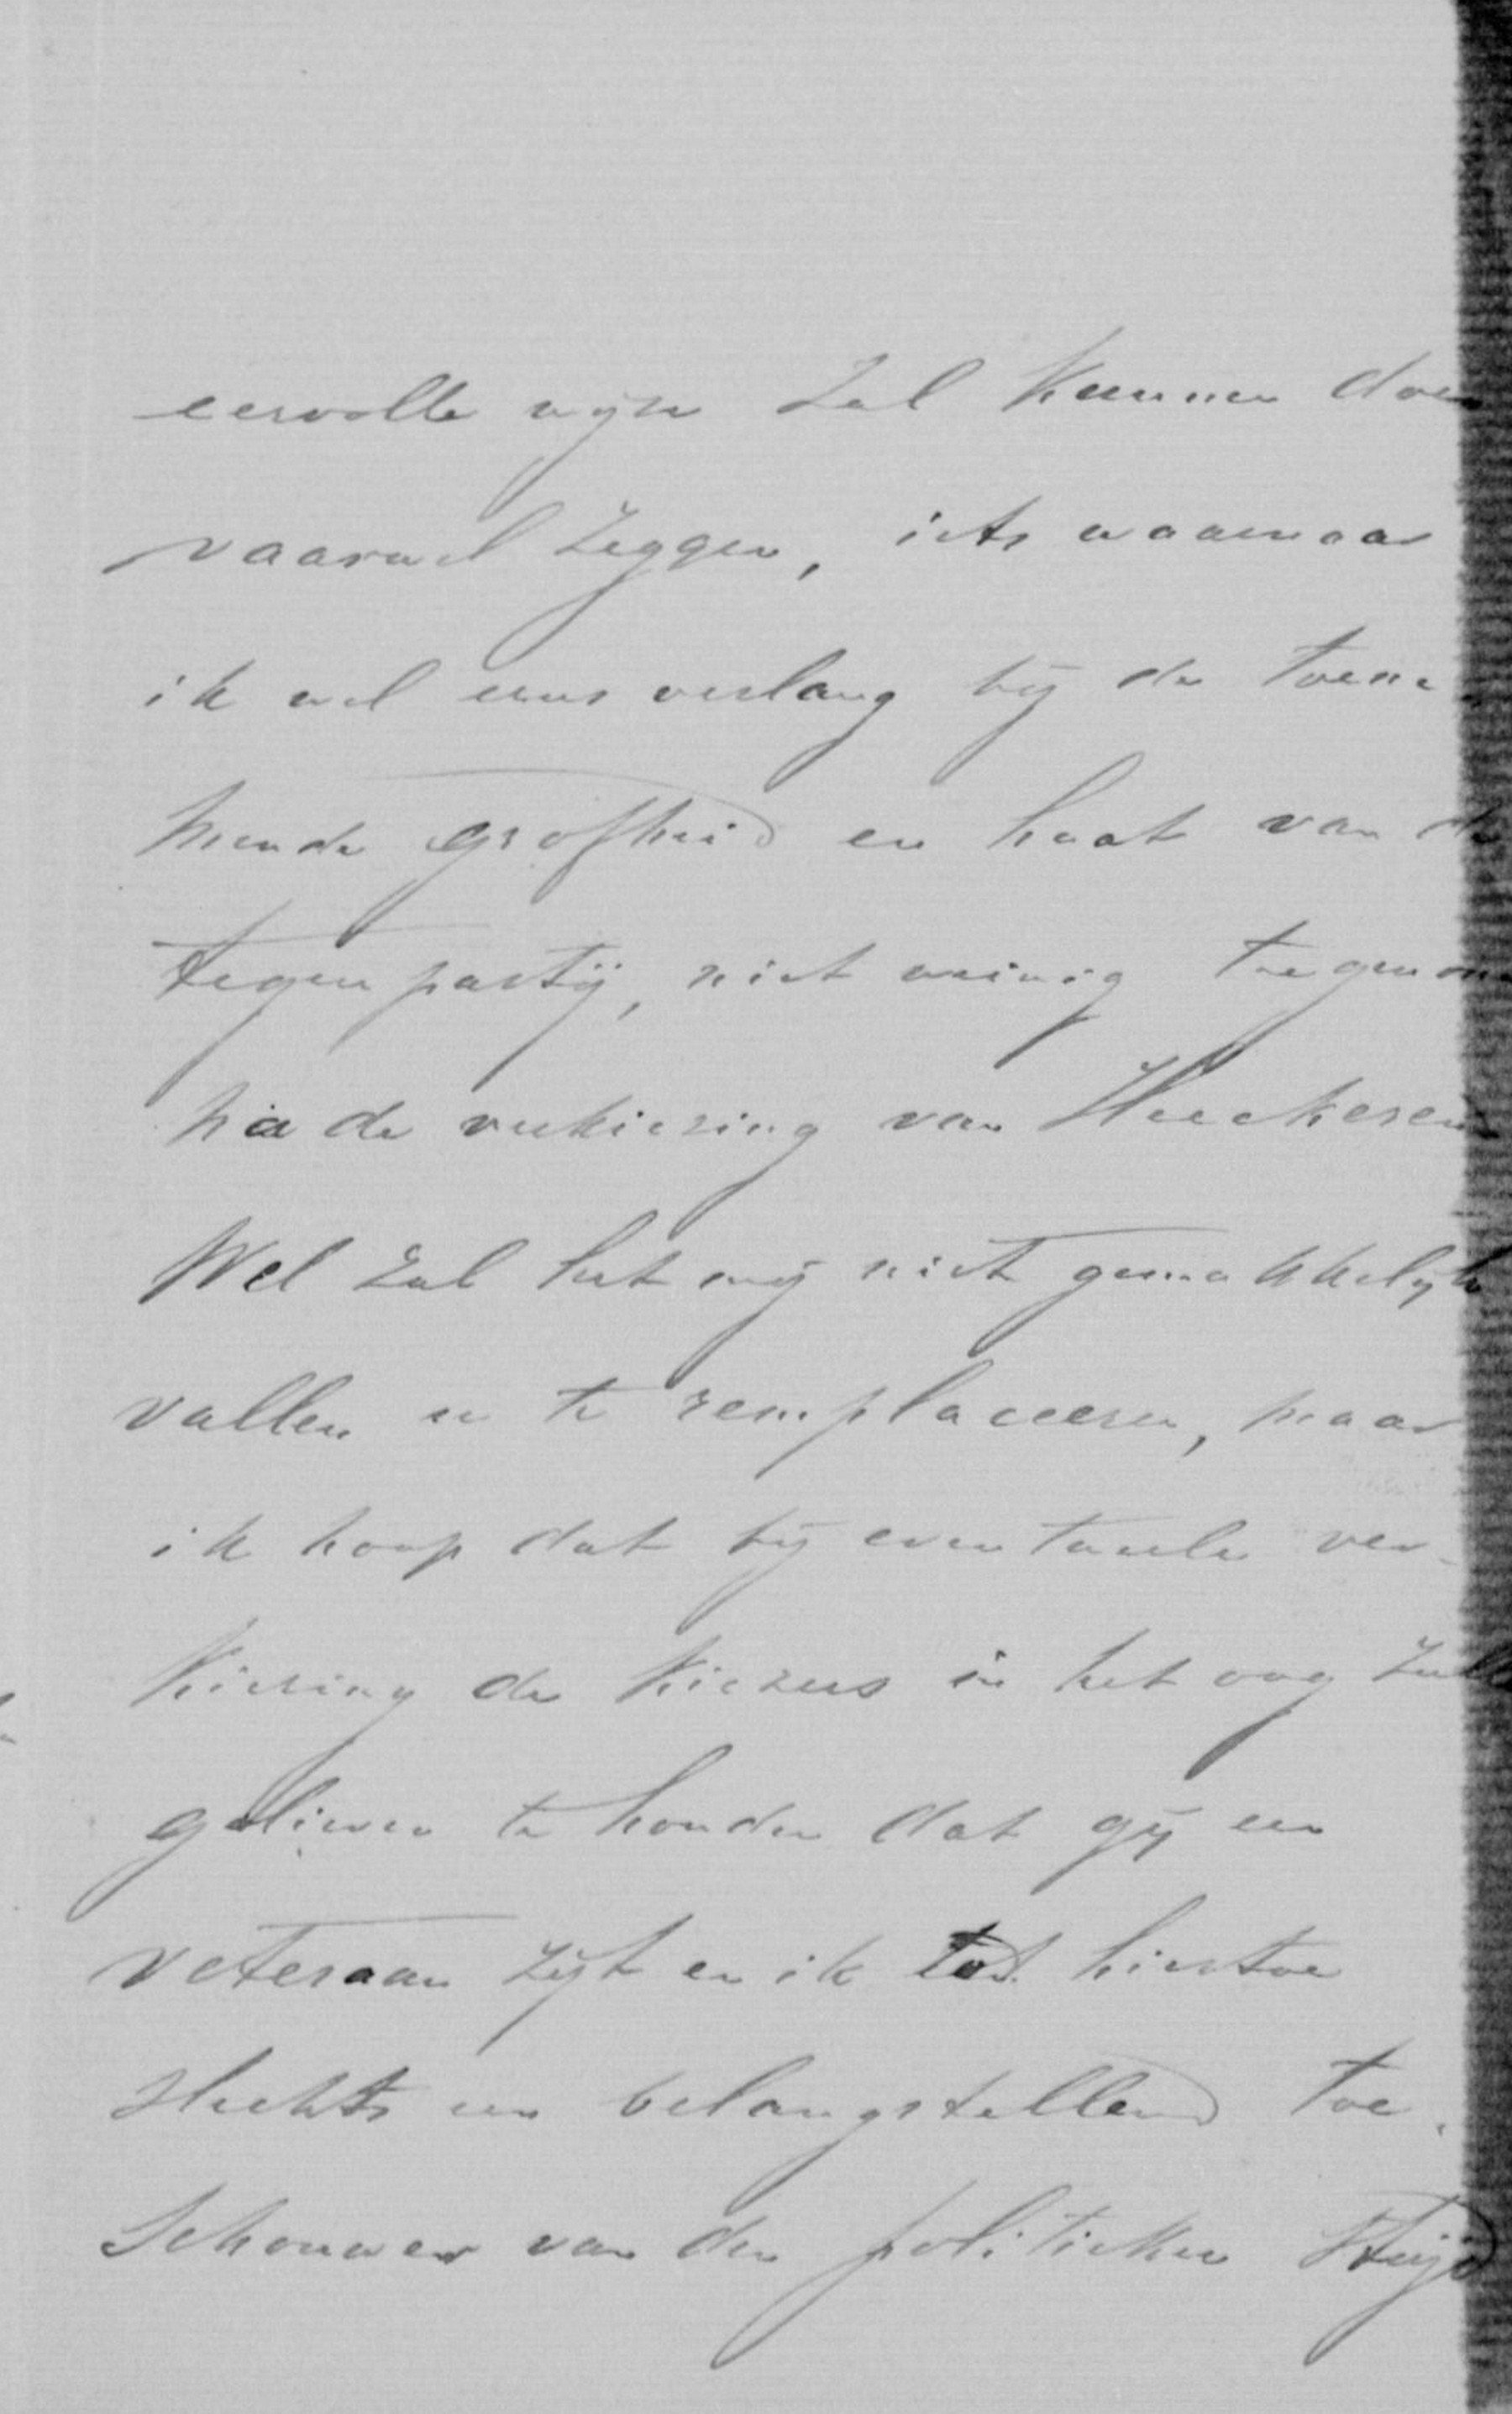 eervolle wijze zal kunnen doen
vaarwel zeggen, iets waarnaar
ik wel eens verlang bij de toene
mende grofheid en haat van de
tegenpartij, niet weinig toegenomen
na de verkiezing van Heeckeren
Wel zal het mij niet gemakkelijk
vallen u te remplaceeren, maar
ik hoop dat bij eventueele ver-
kiezing de kiezers in het oog zullen
gelieven te houden dat gij een
veteraan zijt en ik tot hiertoe
slechts een belangstellend toe-
schouwer van den politieken strijd